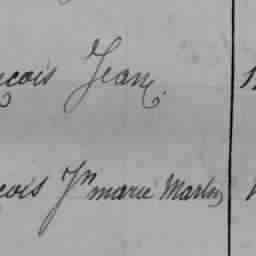 çois Jean
çois Jn marie Martin